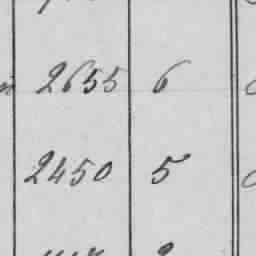 2655 6
2450 5